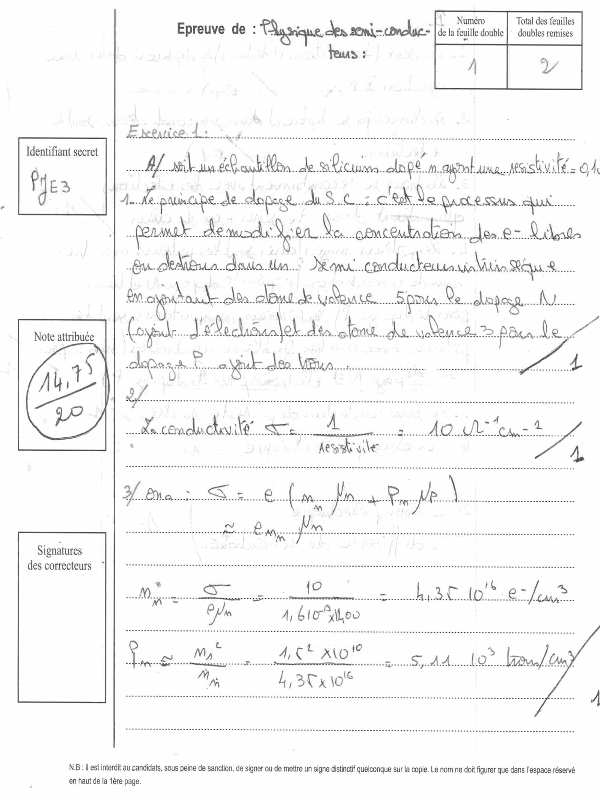 Epreuve de : Physique des semi-conduc-
teurs :
Numéro
de la feuille double
1
Total des feuilles
doubles remises
2
Identifiant secret
PJE3
Note attribuée
14,75
20
Signatures
des correcteurs
Exercice 1 :
A/ soit un échantillon de silicium dopé n ayant une resistivité = 0,1
1- Le principe de dopage du S.C : c'est le processus qui
permet de modifier la concentration des e- libres
ou des trous dans un semi conducteur intrinsèque
en ajoutant des atome de valence 5 pour le dopage N
(ajout d'électrons) et des atome de valence 3 pour le
dopage P ajout des trous.
1
2/
La conductivité σ = 1 / resistivité = 10 Ω⁻¹ cm⁻²
1
3/ on a : σ = e ( n_n μ_n + P_n μ_p )
≈ e n_n μ_n
n_n = σ / e μ_n = 10 / 1,6 10⁻¹⁹ x 1400 = 4,35 10¹⁶ e-/cm³
P_n ≈ n_i² / n_n = 1,5² x 10¹⁰ / 4,35 x 10¹⁶ = 5,11 10³ trous/cm³
1
N.B : il est interdit au candidats, sous peine de sanction, de signer ou de mettre un signe distinctif quelconque sur la copie. Le nom ne doit figurer que dans l'espace réservé
en haut de la 1ère page.